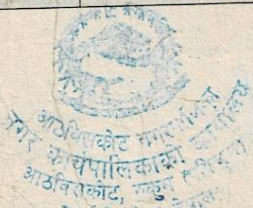 आठबिसकोट नगरपालिका
नगर कार्यपालिकाको कार्यालय
आठबिसकोट, रुकुम (पश्चिम)